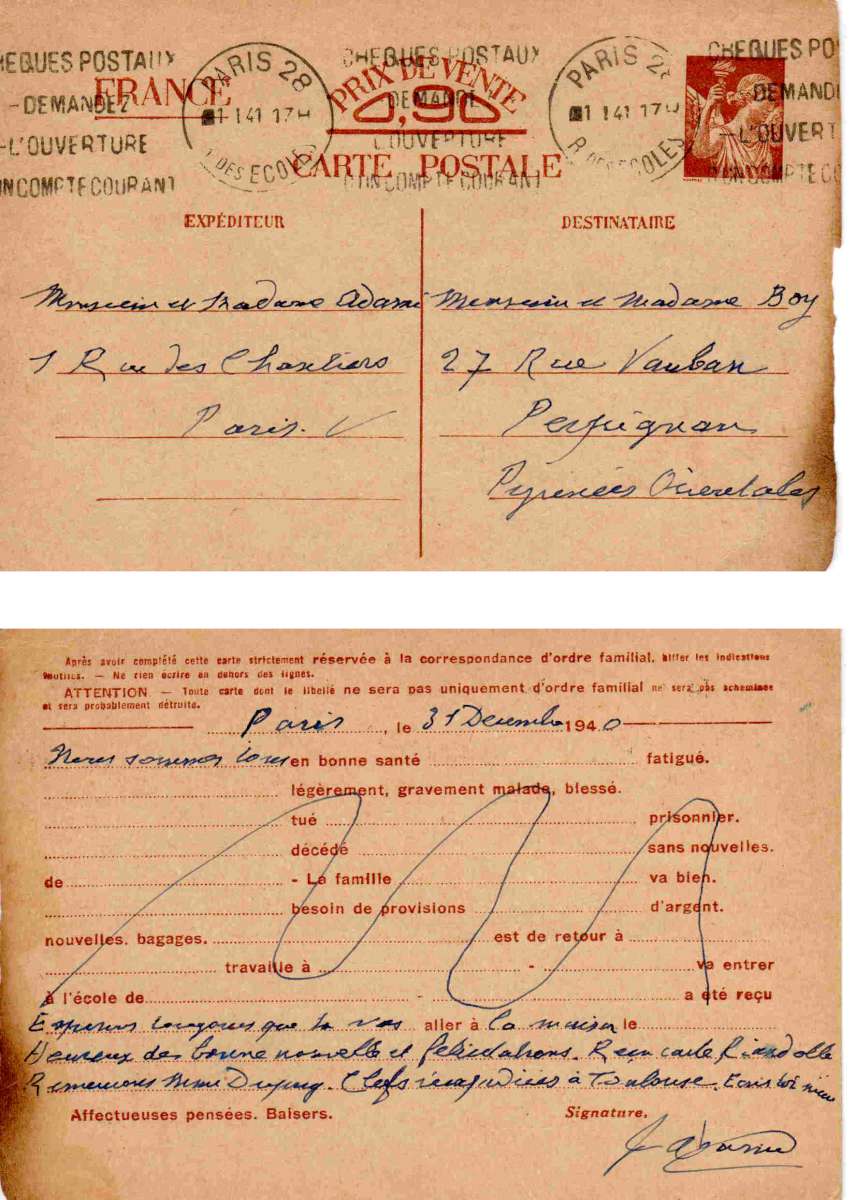 CHEQUES POSTAUX
DEMANDEZ
L'OUVERTURE
D'UN COMPTE COURANT
PARIS 28
1 I 41 17H
R. DES ECOLES
FRANCE
PRIX DE VENTE
0,90
CARTE POSTALE
CHEQUES POSTAUX
DEMANDEZ
L'OUVERTURE
D'UN COMPTE COURANT
PARIS 28
1 I 41 17H
R. DES ECOLES
CHEQUES PO
DEMAND
L'OUVERT
D'UN COMPTE CO
EXPÉDITEUR
Monsieur et Madame Adam
1 Rue des Chantiers
Paris. V
DESTINATAIRE
Monsieur et Madame Boy
27 Rue Vauban
Perpignan
Pyrénées Orientales
Après avoir complété cette carte strictement réservée à la correspondance d'ordre familial, biffer les indications
inutiles. — Ne rien écrire en dehors des lignes.
ATTENTION — Toute carte dont le libellé ne sera pas uniquement d'ordre familial ne sera pas acheminée
et sera probablement détruite.
Paris, le 31 Decembre 1940
Nous sommes tous en bonne santé fatigué.
légèrement, gravement malade, blessé.
tué prisonnier.
décédé sans nouvelles.
de - La famille va bien.
besoin de provisions d'argent.
nouvelles, bagages. est de retour à
travaille à - va entrer
à l'école de - a été reçu
Esperons toujours que tu vas aller à la maison le
Heureux des bonne nouvelle et felicitations. Recu carte
Remercions Mimi Dupuy. Clefs à Toulouse. Ecris
Affectueuses pensées. Baisers. Signature,